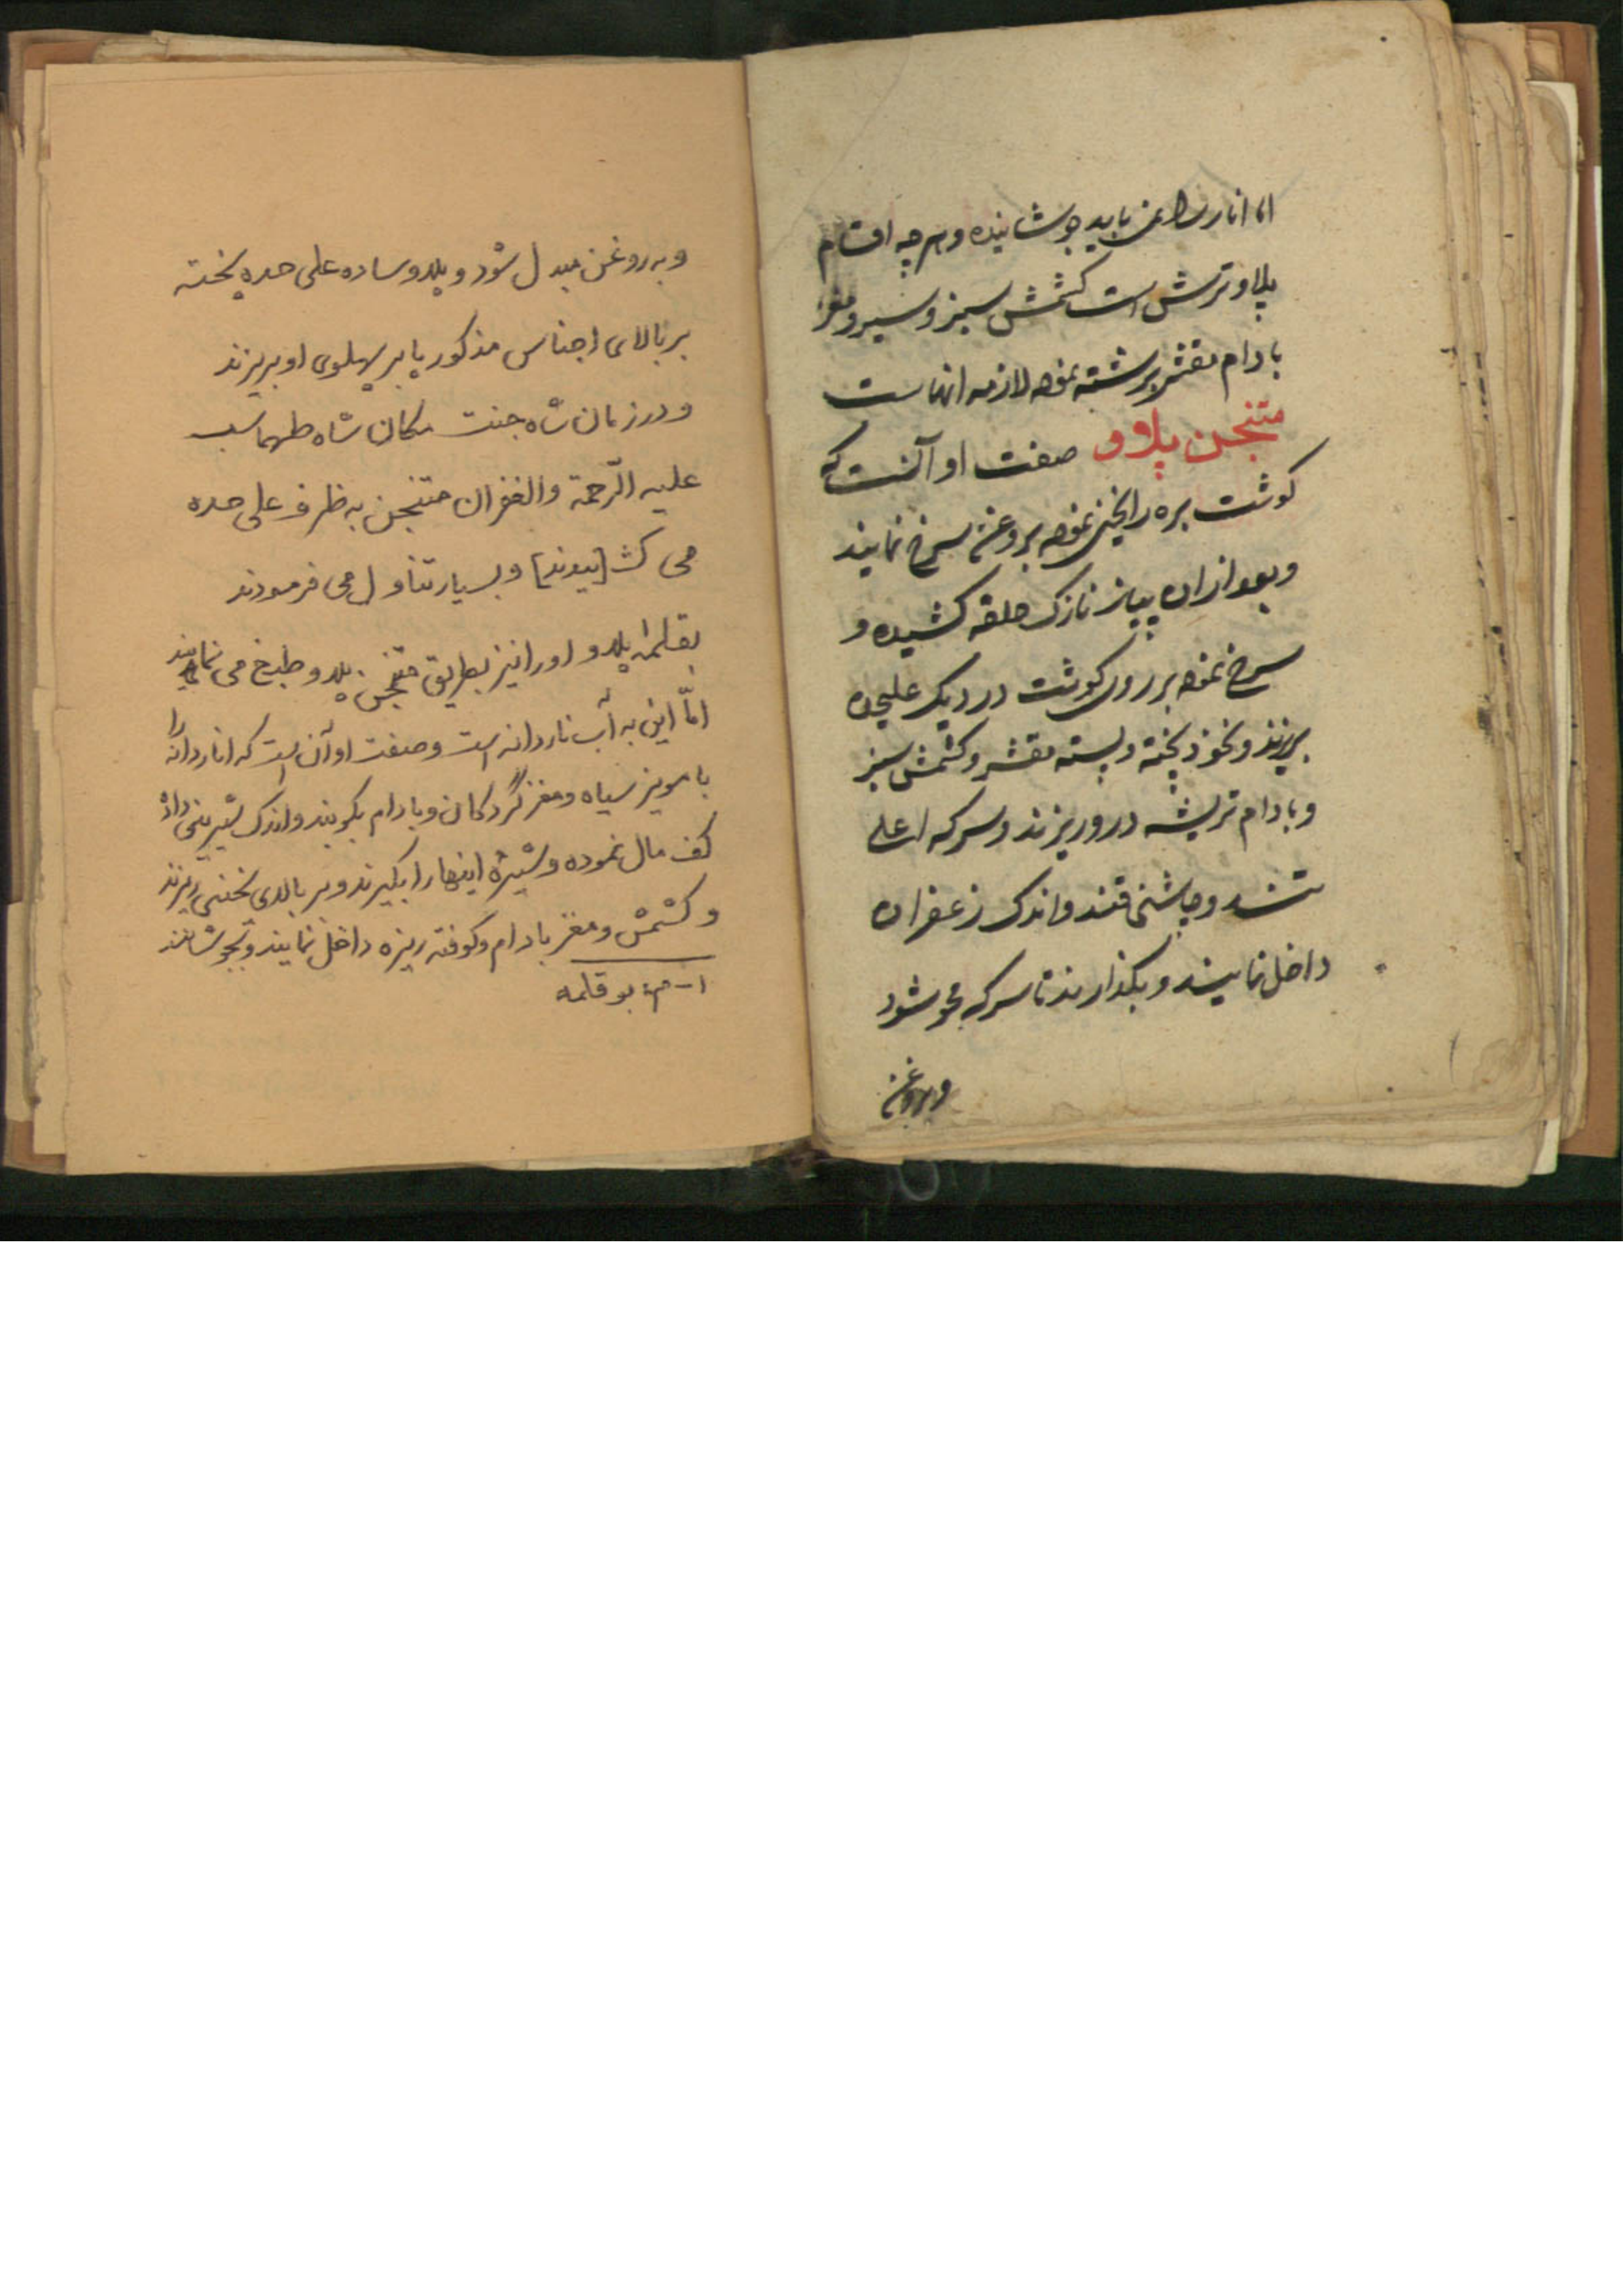 اما انار را نمی باید جوشانیده و هرچه اقسام
پلاو ترش است کشمش سبز و سیر و مغز
بادام مقشر برشته نموده لازمه انهاست
متنجن پلاو و صفت او آنست که
کوشت بره را یخنی نموده بروغن سرخ نمایند
و بعد ازان پیاز نازک حلقه کشیده و
سرخ نموده بر روی کوشت در دیک علیحده
بریزند و نخود پخته و پسته مقشر و کشمش سبز
و بادام تریشه درو ریزند و سرکه اعلی
تند و چاشنی قند و اندک زعفران
داخل نمایند و بکذارند تا سرکه محو شود
و بروغن
و به روغن مبدل شود و پلاو ساده علی حده پخته
بر بالای اجناس مذکور یا بر پهلوی او بریزند
و در زمان شاه جنت مکان شاه طهماسب
علیه الرّحمة والغفران متنجن به ظرف علی حده
می کش [یدند] و بسیار تناول می فرمودند
بقلمه۱ پلاو او را نیز بطریق متنجن پلاو طبخ می نمایند
امّا این به آب ناردانه است و صفت او آن است که اناردانه را
با مویز سیاه و مغز گردکان و بادام بکوبند و اندک شیرینی داده
کف مال نموده و شیرهٔ اینها را بگیرند و بر بالای یخنی ریزند
و کشمش و مغز بادام و کوفته ریزه داخل نمایند و بجوشانند
۱- م: بوقلمه